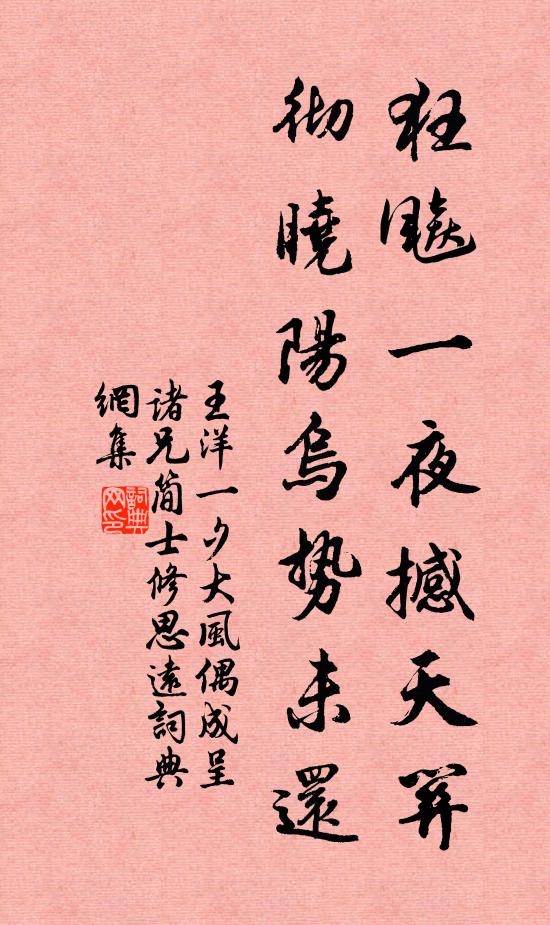 狂飈一夜撼天關
彻曉陽烏势未還
王洋一夕大風偶成呈
诸兄简士修思遠詞典
網集
詞典
网印